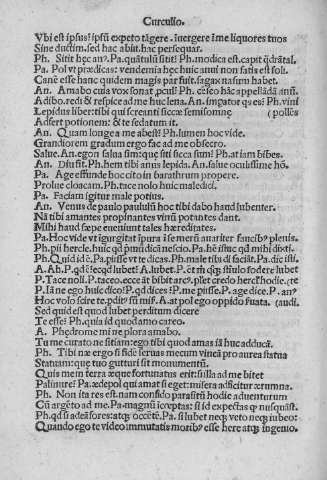 Curculio.
Vbi est ipsus? ipsū expeto tāgere. inuergere ĩme liquores tuos
Sine ductim. sed hac abiit. hac persequar.
Ph. Sitit hęc anꝰ. Pa. quātulū sitit? Ph. modica est. capit q̄drātal.
Pa. Pol vt prædicas: vendemia hęc huic anui non satis est soli.
Canē esse hanc quidem magis par fuit. sagax nasum habet.
An. Amabo cuia vox sonat ꝓcul? Ph. cēseo hāc appellādā anū.
Adibo. redi & respice ad me huc lena. An. imꝑator qs es? Ph. vini
Lepidus liber: tibi qui screanti siccæ semisomnę (pollēs
Adfert potionem: & te sedatum it.
An. Quam longe a me abest? Ph. lumen hoc vide.
Grandiorem gradum ergo fac ad me obsecro.
Salue. An. egon salua sim: quę siti sicca sum? Ph. at iam bibes.
An. Diu fit. Ph. hem tibi anus lepida. An. salue oculissime hō.
Pa. Age effunde hoc cito in barathrum propere.
Prolue cloacam. Ph. tace nolo huic maledici.
Pa. Faciam igitur male potius.
An. Venus de paulo paulum hoc tibi dabo haud lubenter.
Nā tibi amantes propinantes vinū potantes dant.
Mihi haud sæpe eueniunt tales hæreditates.
Pa. Hoc vide vt ĩgurgitat ĩpura ĩ se merū auariter faucibꝰ plenis.
Ph. pii hercle. huic qd pmū dicā nescio. Pa. hē istuc qd mihi dixti.
Ph. Quid id ē. Pa. piisse vt te dicas. Ph. male tibi di faciāt. Pa. dic isti.
A. Ah. P. qd ē? ecqd lubet? A. lubet. P. ēt m̄ qq; stiulo fodere lubet
P. Tace noli. P. taceo. ecce āt bibit arcꝰ. plꝫet credo hercl̄ hodie. te
P. Iā ne ego huic dico? P. qd dices? P. me piisse. P. age dice. P. anꝰ?
Hoc volo scire te. pditꝰ sū misꝰ. A. at pol ego oppido suata. (audi.
Sed quid est quod lubet perditum dicere
Te esse? Ph. quia id quod amo careo.
A. Phędrome mi ne plora amabo.
Tu me curato ne sitiam: ego tibi quod amas iā huc adducā.
Ph. Tibi næ ergo si fidē seruas mecum vineā pro aurea statua
Statuam: quę tuo gutturi sit monumentū.
Quis mein terra æque fortunatus erit: si illa ad me bitet
Palinure? Pa. ædepol qui amat si eget: misera adficitur ærumna.
Ph. Non ita res est. nam confido parasitū hodie aduenturum
Cū argēto ad me. Pa. magnū ĩceptas: si id expectas qḋ nusquāst.
Ph. qd si adeā fores: atq; occētē. Pa. si lubet neq; veto neq; iubeo:
Quando ego te video immutatis moribꝰ esse here atq; ingenio.